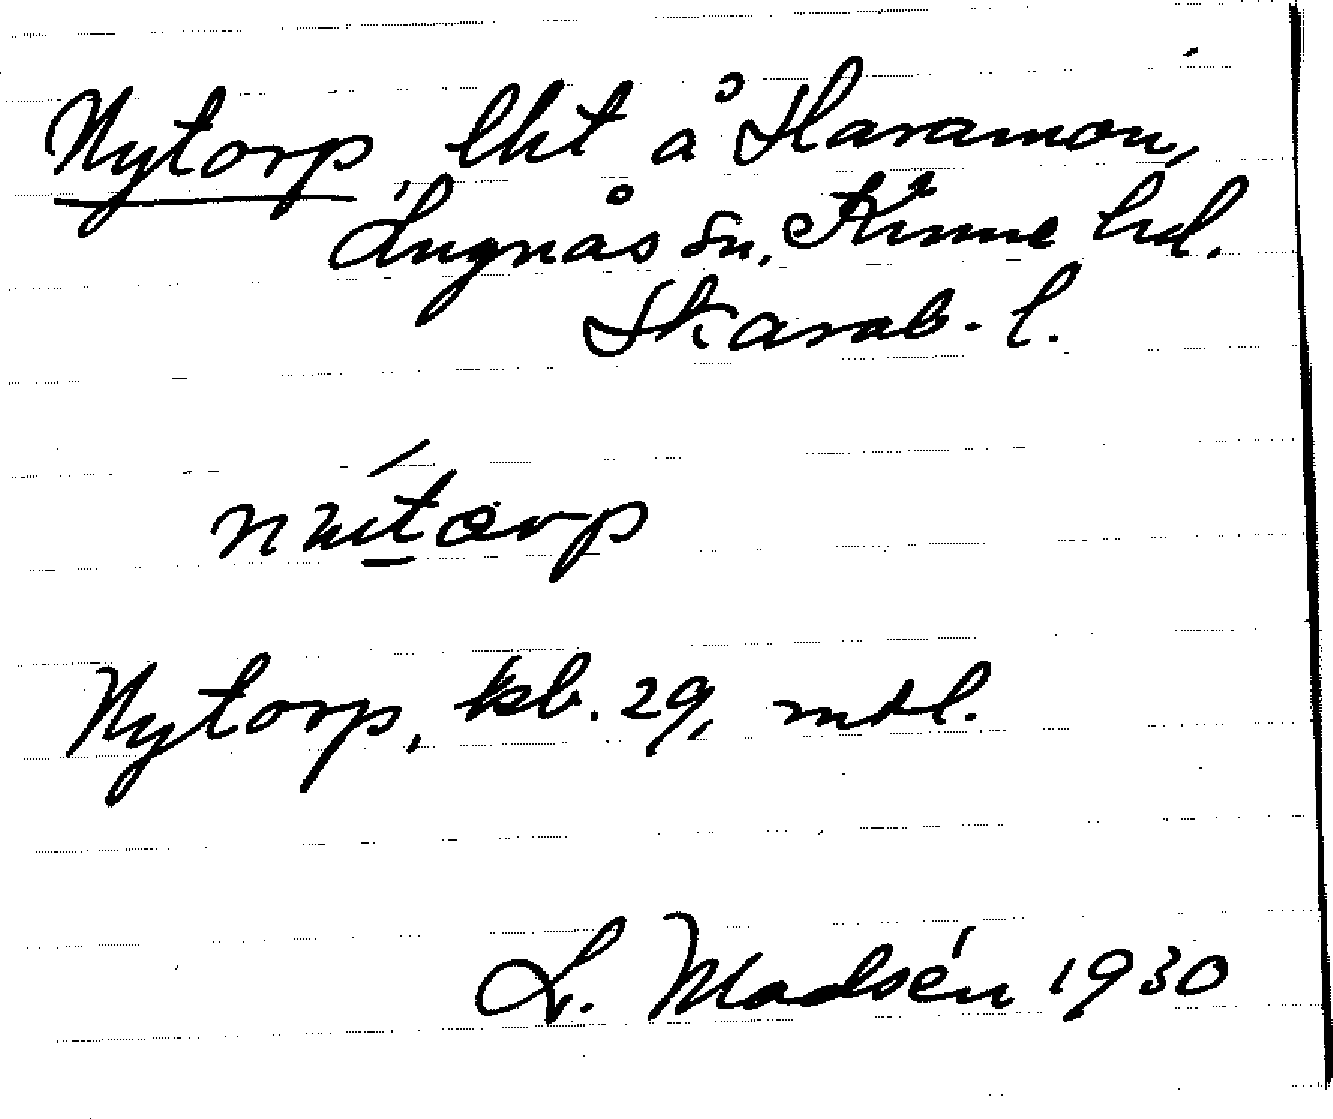 Nytorp, lht å Haramon,
Lugnås sn, Kinne hd.
Skarab. l.
Nytorp, kb. 29, mtl.
L. Madsén 1930